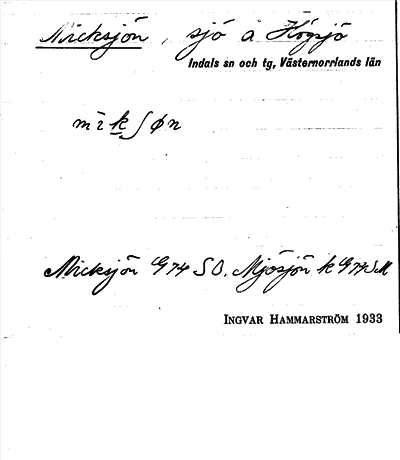 Micksjön, sjö å Högsjö
Indals sn och tg, Västernorrlands län
mìkʃøn
Micksjön G 74 SO. Mjösjön k G 74 SM
INGVAR HAMMARSTRÖM 1933